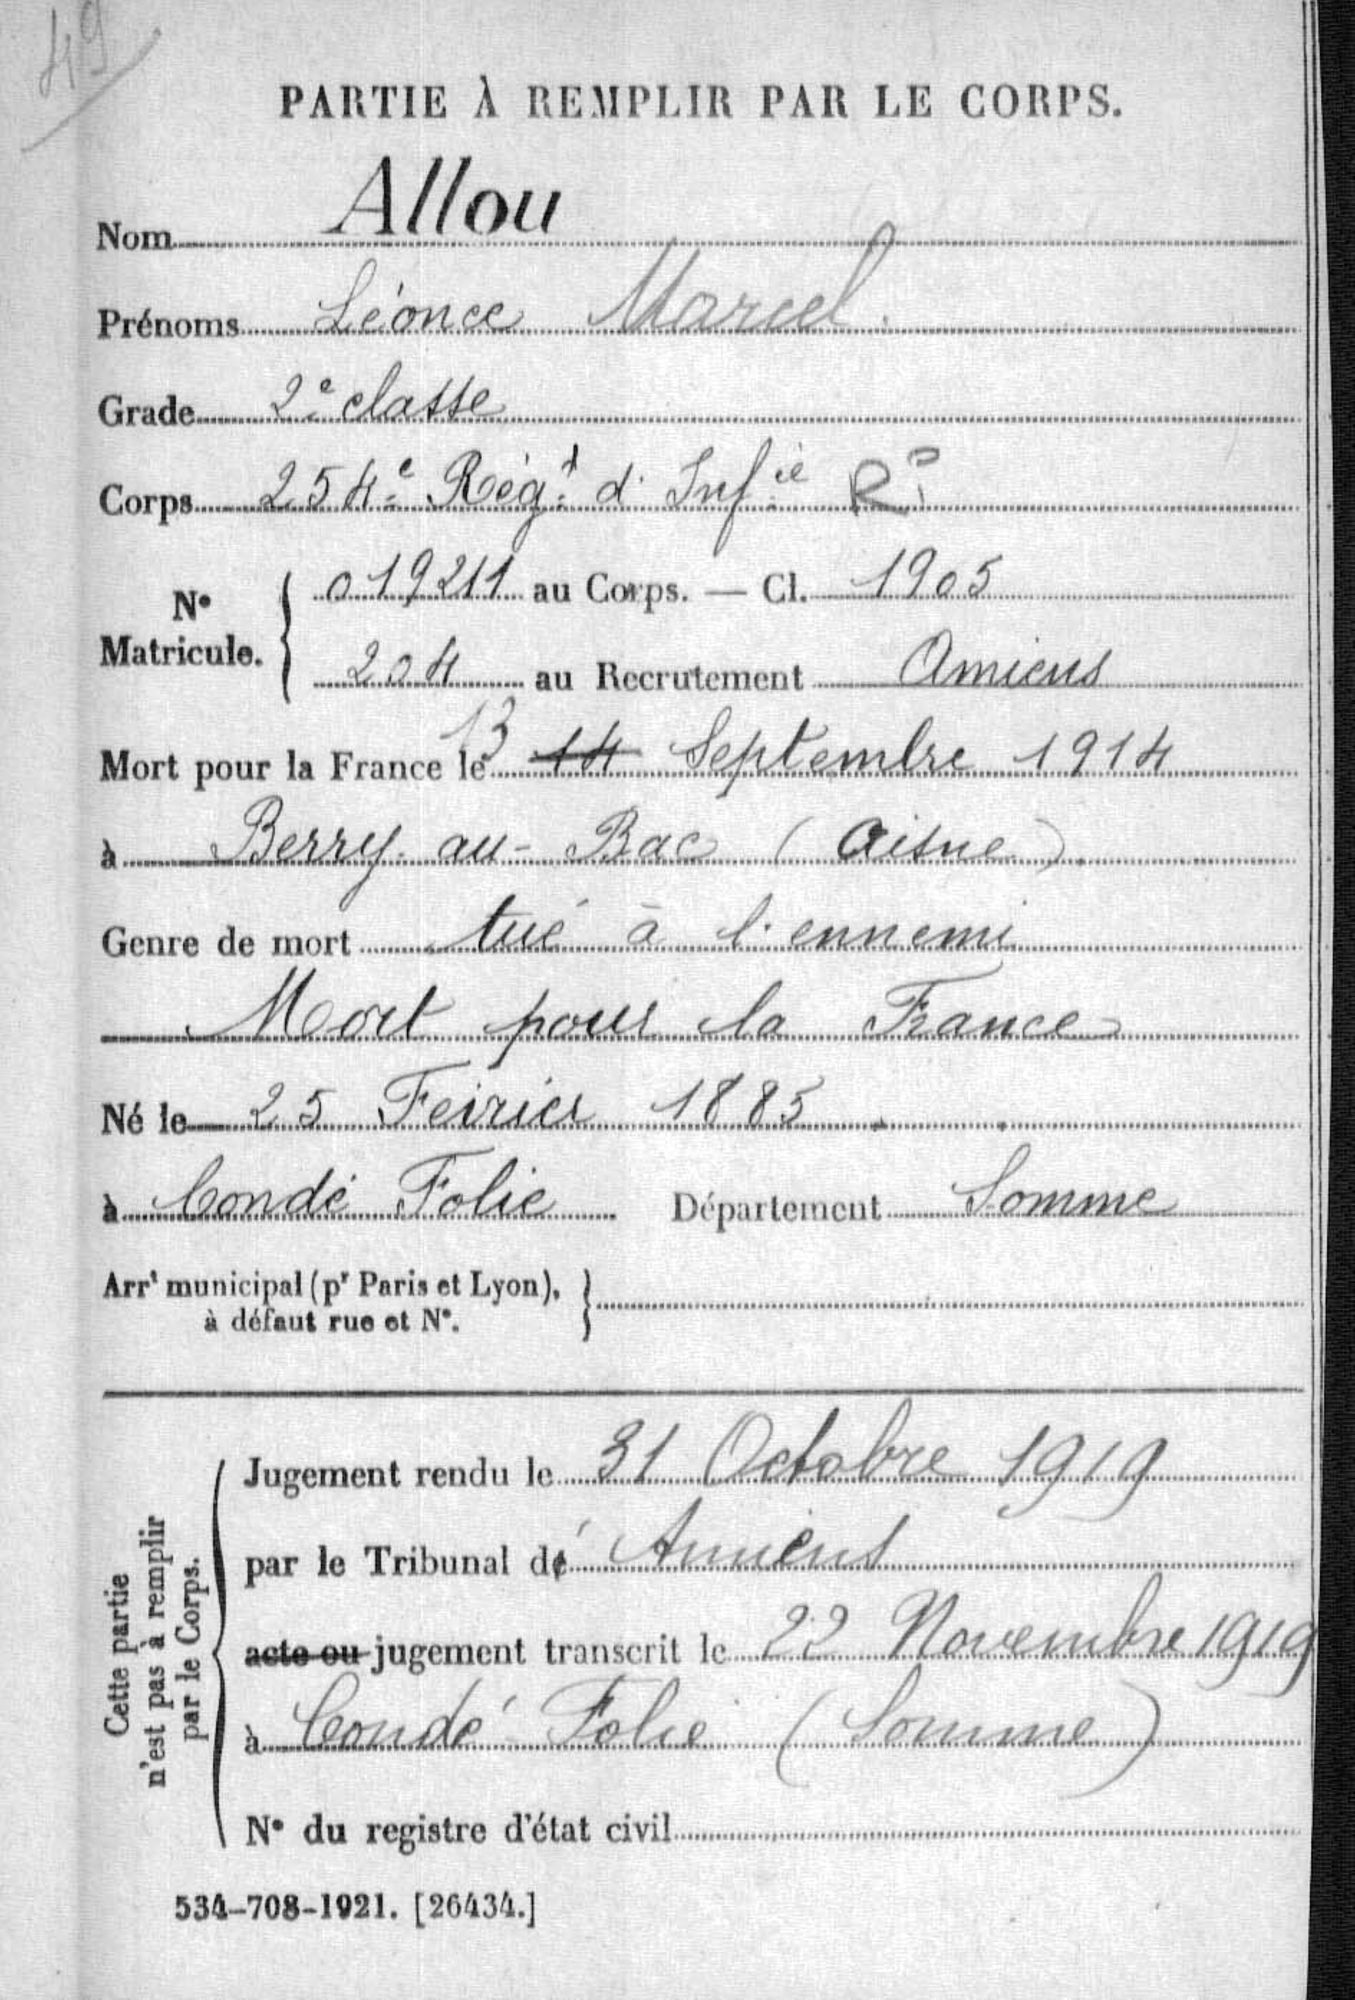 49
PARTIE À REMPLIR PAR LE CORPS.
Nom Allou
Prénoms Léonce Marcel.
Grade 2e classe
Corps 254e Régt d'Infie
No Matricule. 019211 au Corps. — Cl. 1905
204 au Recrutement Amiens
Mort pour la France le 13 14 Septembre 1914
à Berry-au-Bac (Aisne).
Genre de mort tué à l'ennemi
Mort pour la France
Né le 25 Février 1885
à Condé Folie Département Somme
Arrt municipal (pr Paris et Lyon),
à défaut rue et No.
Cette partie
n'est pas à remplir
par le Corps.
Jugement rendu le 31 Octobre 1919
par le Tribunal d' Amiens
acte ou jugement transcrit le 22 Novembre 1919
à Condé-Folie (Somme)
No du registre d'état civil
534-708-1921. [26434.]